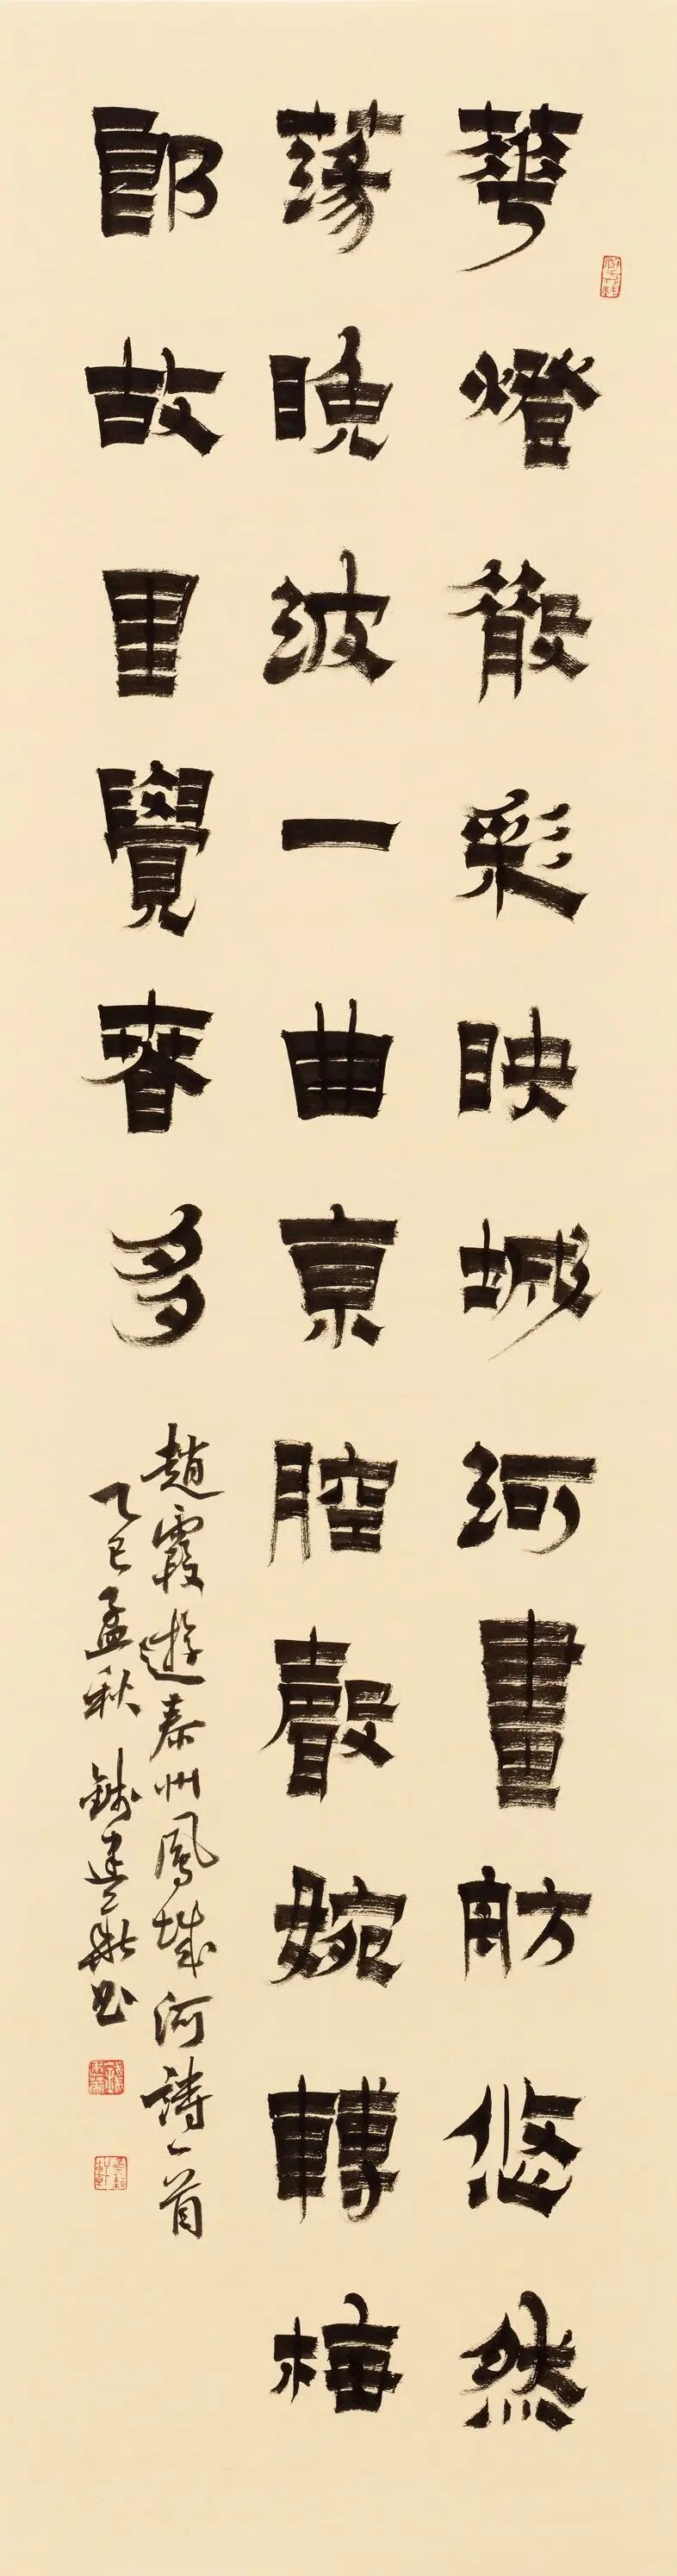 華燈散彩映城河畫舫悠然
蕩晚波一曲京腔聲婉轉梅
郎故里覺春多
趙霞遊泰州鳳城河詩一首
乙巳孟秋 錢建榮书